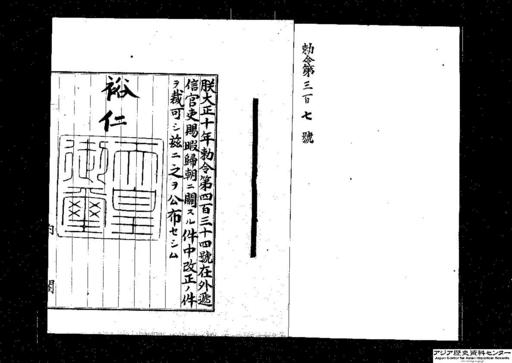 勅令第三百七號
朕大正十年勅令第四百三十四號在外遞
信官吏賜暇歸朝ニ關スル件中改正ノ件
ヲ裁可シ茲ニ之ヲ公布セシム
裕仁
天皇
御璽
内閣
アジア歴史資料センター
Japan Center for Asian Historical Records